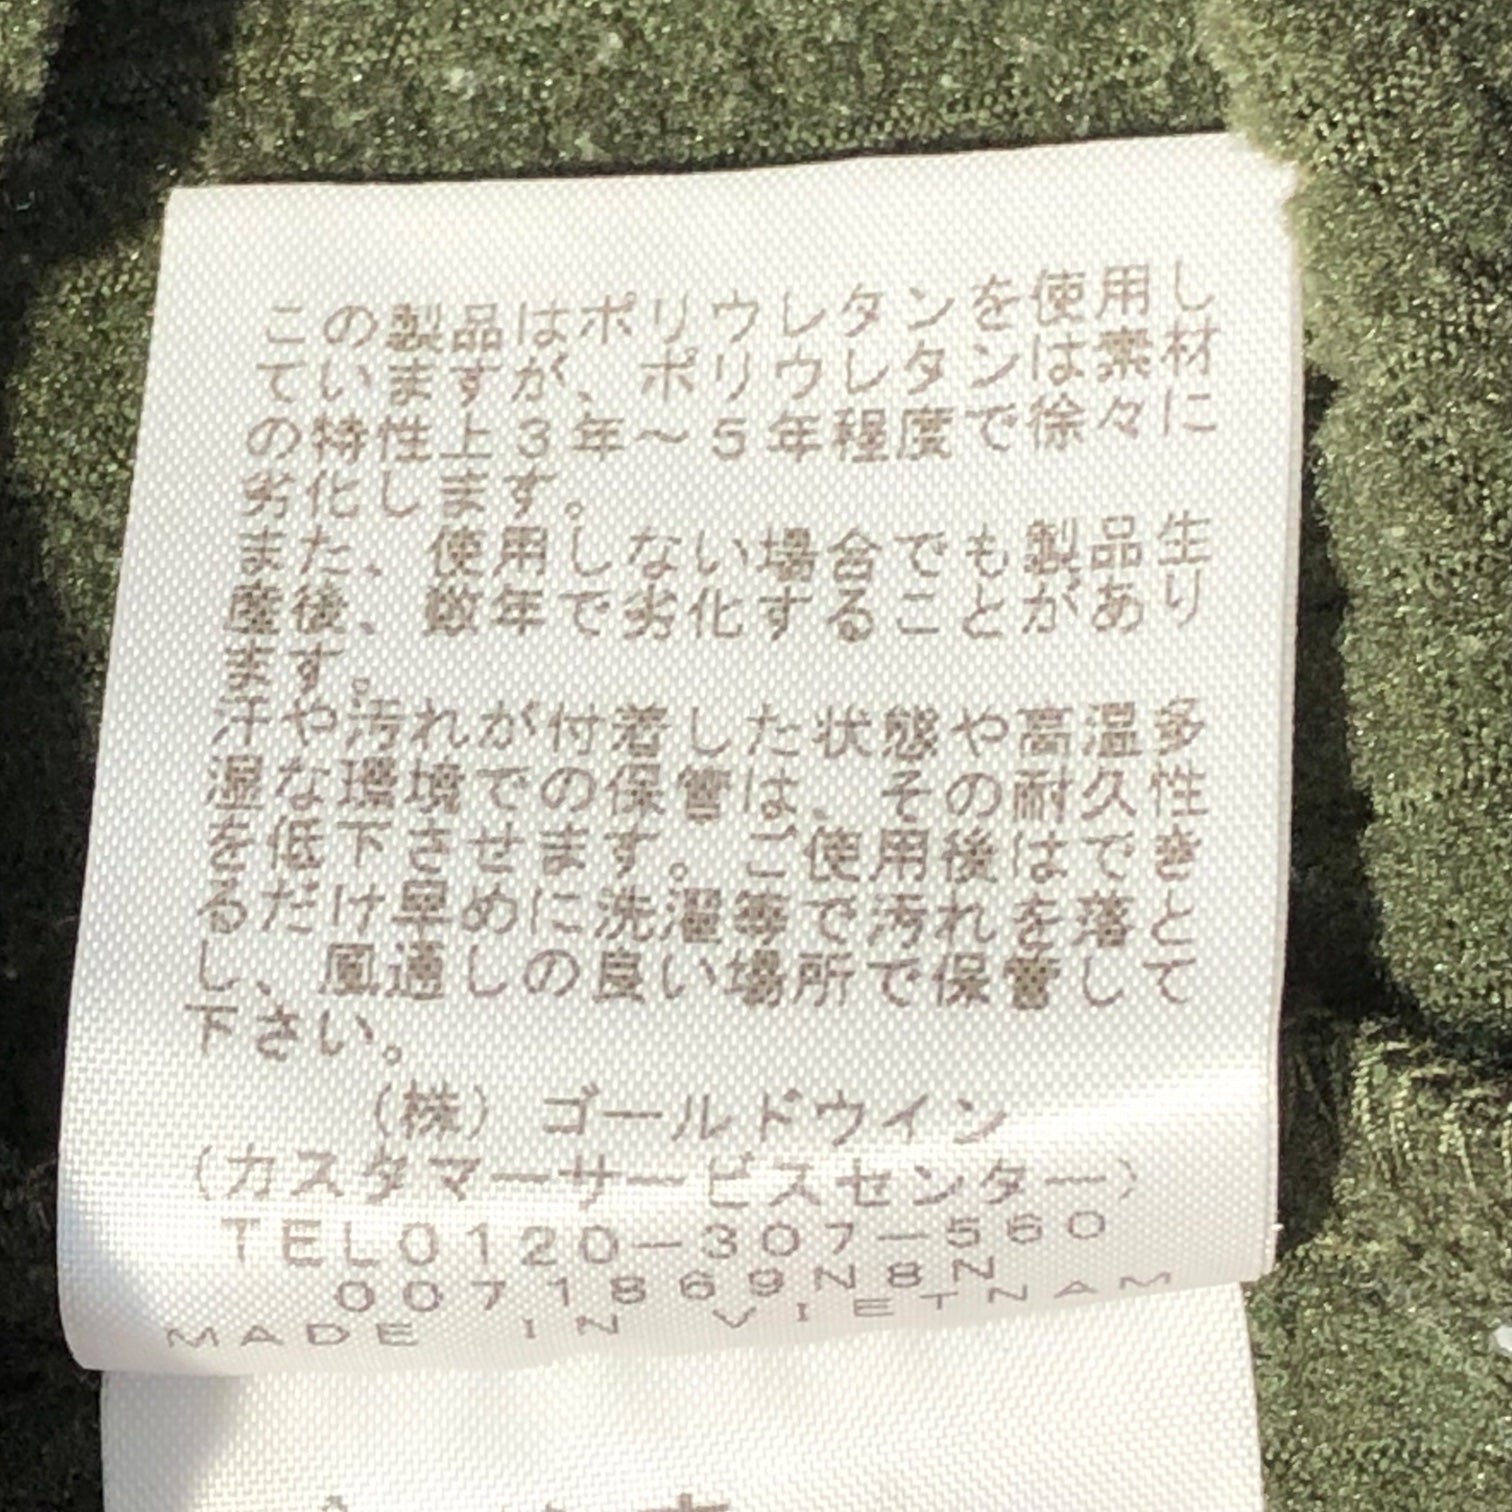 この製品はポリウレタンを使用し
ていますが、ポリウレタンは素材
の特性上3年〜5年程度で徐々に
劣化します。
また、使用しない場合でも製品生
産後、数年で劣化することがあり
ます。
汗や汚れが付着した状態や高温多
湿な環境での保管は、その耐久性
を低下させます。ご使用後はでき
るだけ早めに洗濯等で汚れを落と
し、風通しの良い場所で保管して
下さい。
(株)ゴールドウイン
(カスタマーサービスセンター)
TEL0120-307-560
0071869N8N
MADE IN VIETNAM